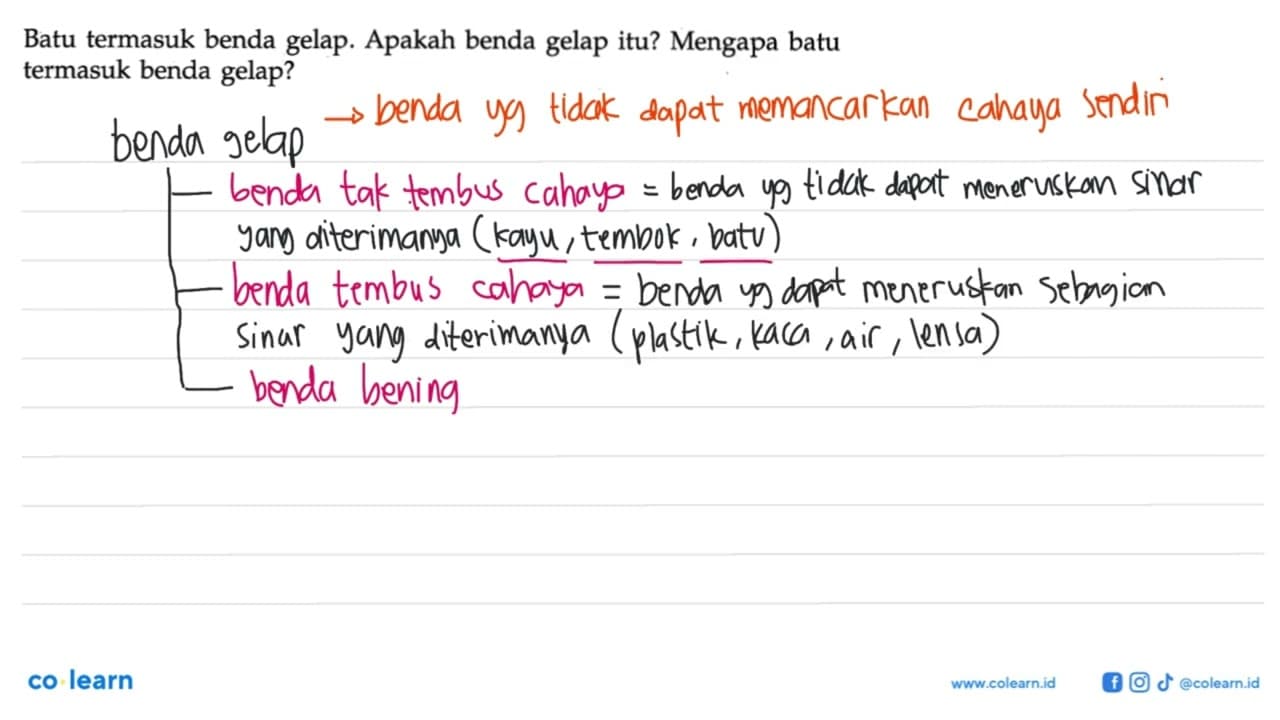 Batu termasuk benda gelap. Apakah benda gelap itu? Mengapa batu
termasuk benda gelap?
→ benda yg tidak dapat memancarkan cahaya sendiri
benda gelap
benda tak tembus cahaya = benda yg tidak dapat meneruskan sinar
yang diterimanya (kayu, tembok, batu)
benda tembus cahaya = benda yg dapat meneruskan sebagian
sinar yang diterimanya (plastik, kaca, air, lensa)
benda bening
co·learn
www.colearn.id
@colearn.id